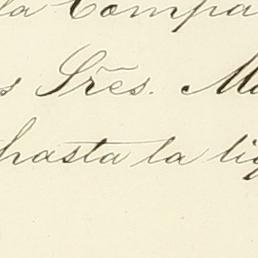 la Compa
s Sr̃es. M
hasta la li